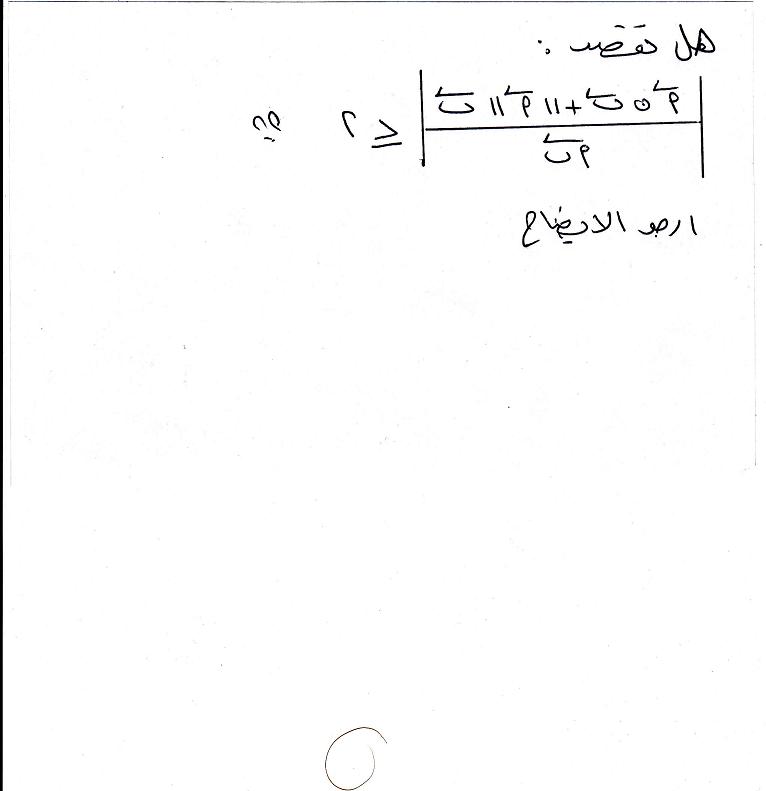 هل تقصد :
| (أ⃗ ⊙ ب⃗ + || أ⃗ || ب⃗) / (أ ب⃗) | ≤ ٢ ؟؟
ارجو الايضاح